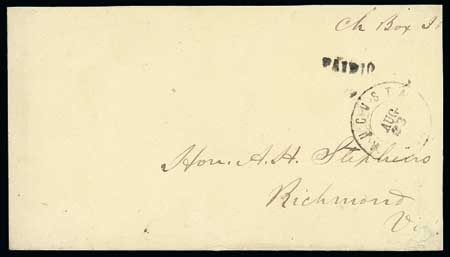 Ch Box I
PAID 10
AUGUSTA
AUG
23
Hon. A. H. Stephens
Richmond
Va.